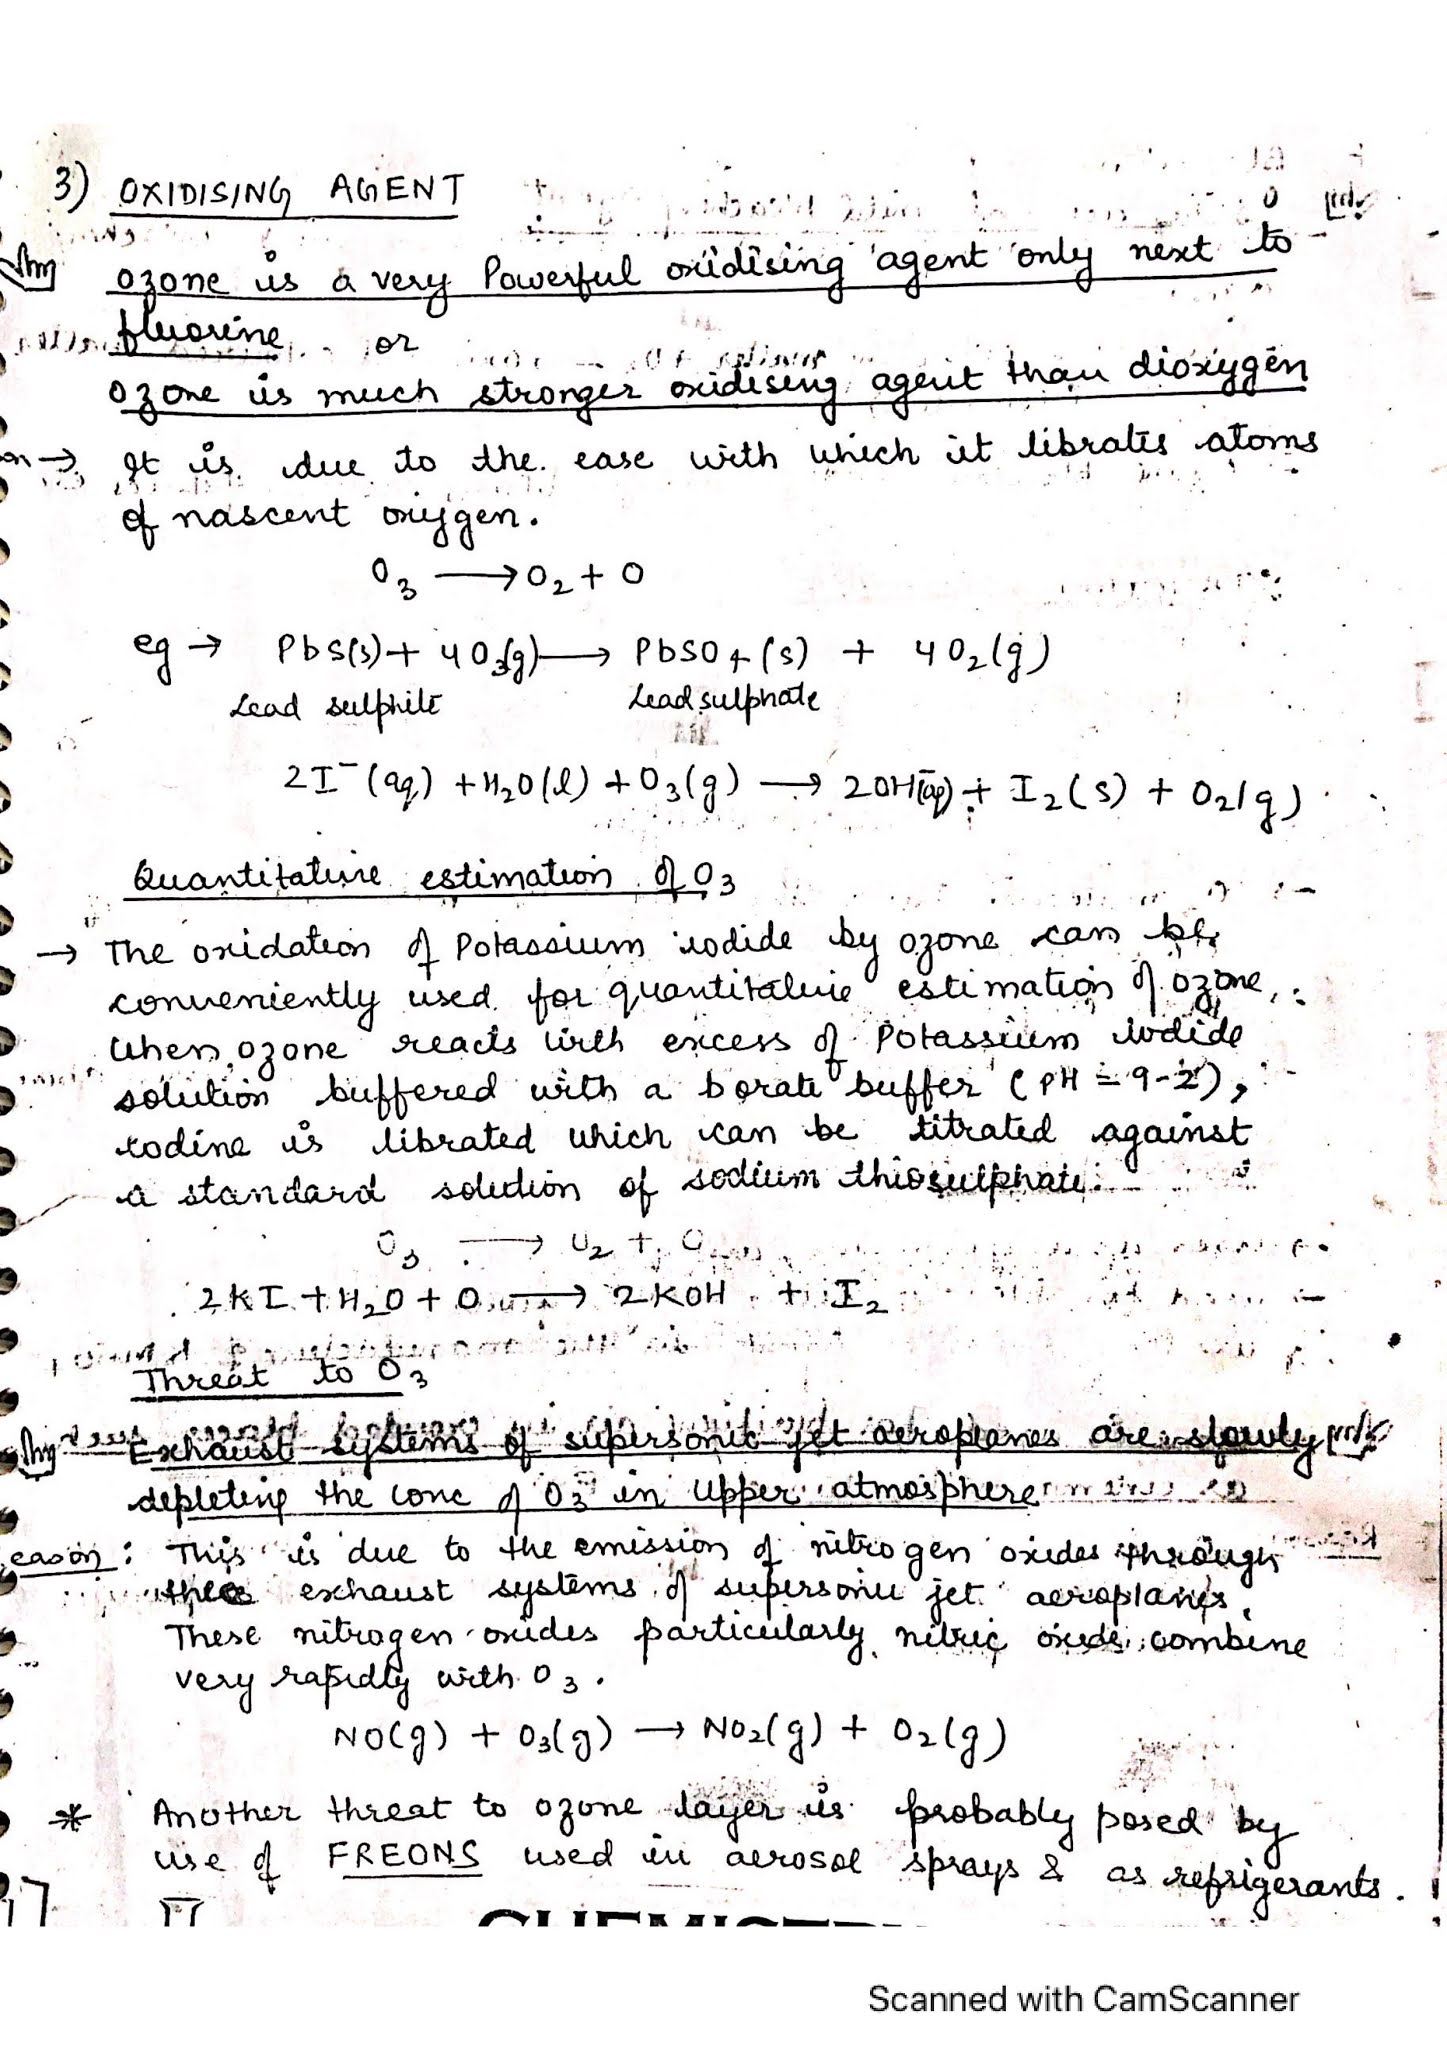 3) OXIDISING AGENT
Imp ozone is a very Powerful oxidising agent only next to
fluorine or
ozone is much stronger oxidising agent than dioxygen
→ It is due to the ease with which it librates atoms
of nascent oxygen.
O3 ⟶ O2 + O
eg → PbS(s) + 4O3(g) ⟶ PbSO4(s) + 4O2(g)
Lead sulphite Lead sulphate
2I⁻(aq) + H2O(l) + O3(g) ⟶ 2OH⁻(aq) + I2(s) + O2(g)
Quantitative estimation of O3
→ The oxidation of Potassium iodide by ozone can be
conveniently used for quantitative estimation of ozone.
When ozone reacts with excess of Potassium iodide
solution buffered with a borate buffer (PH = 9-2),
iodine is librated which can be titrated against
a standard solution of sodium thiosulphate.
O3 ⟶ O2 + O
2KI + H2O + O ⟶ 2KOH + I2
Threat to O3
Imp Exhaust systems of supersonic jet aeroplanes are slowly Imp
depleting the conc of O3 in Upper atmosphere
eason: This is due to the emission of nitrogen oxides through
exhaust systems of supersonic jet aeroplanes.
These nitrogen oxides particularly nitric oxide combine
very rapidly with O3.
NO(g) + O3(g) ⟶ NO2(g) + O2(g)
* Another threat to ozone layer is probably posed by
use of FREONS used in aerosol sprays & as refrigerants.
Scanned with CamScanner